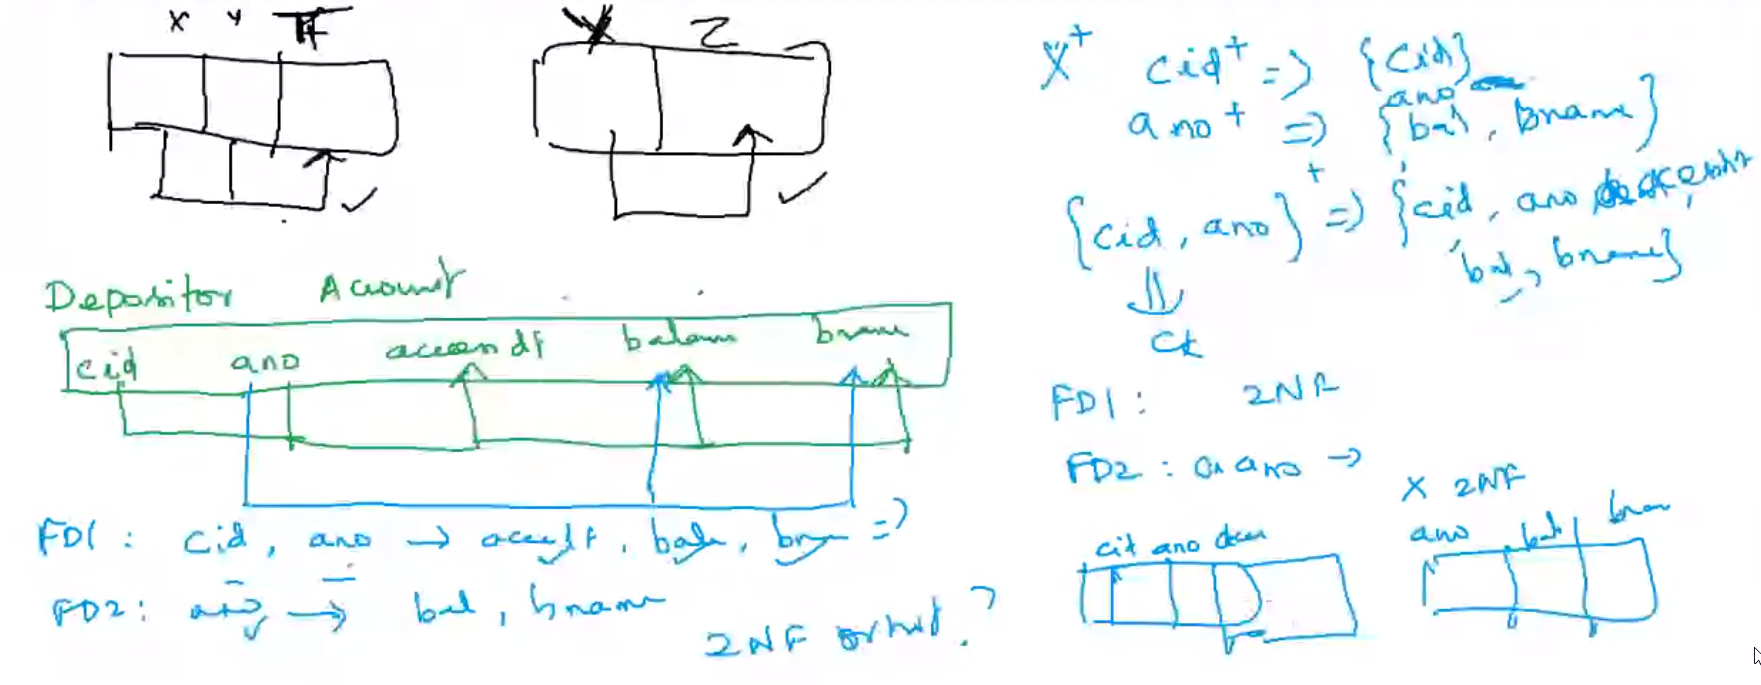 X Y
Z
Depositor Account
cid ano balan bname
FD1 : cid, ano → , bal, bn =>
FD2 : ano → bal, bname
2NF or not ?
X+ cid+ => {cid}
ano
ano+ => {bal, bname}
{cid, ano}+ => {cid, ano,
bal, bname}
ck
FD1 : 2NF
FD2 : ano →
X 2NF
cid ano
ano bal bnam